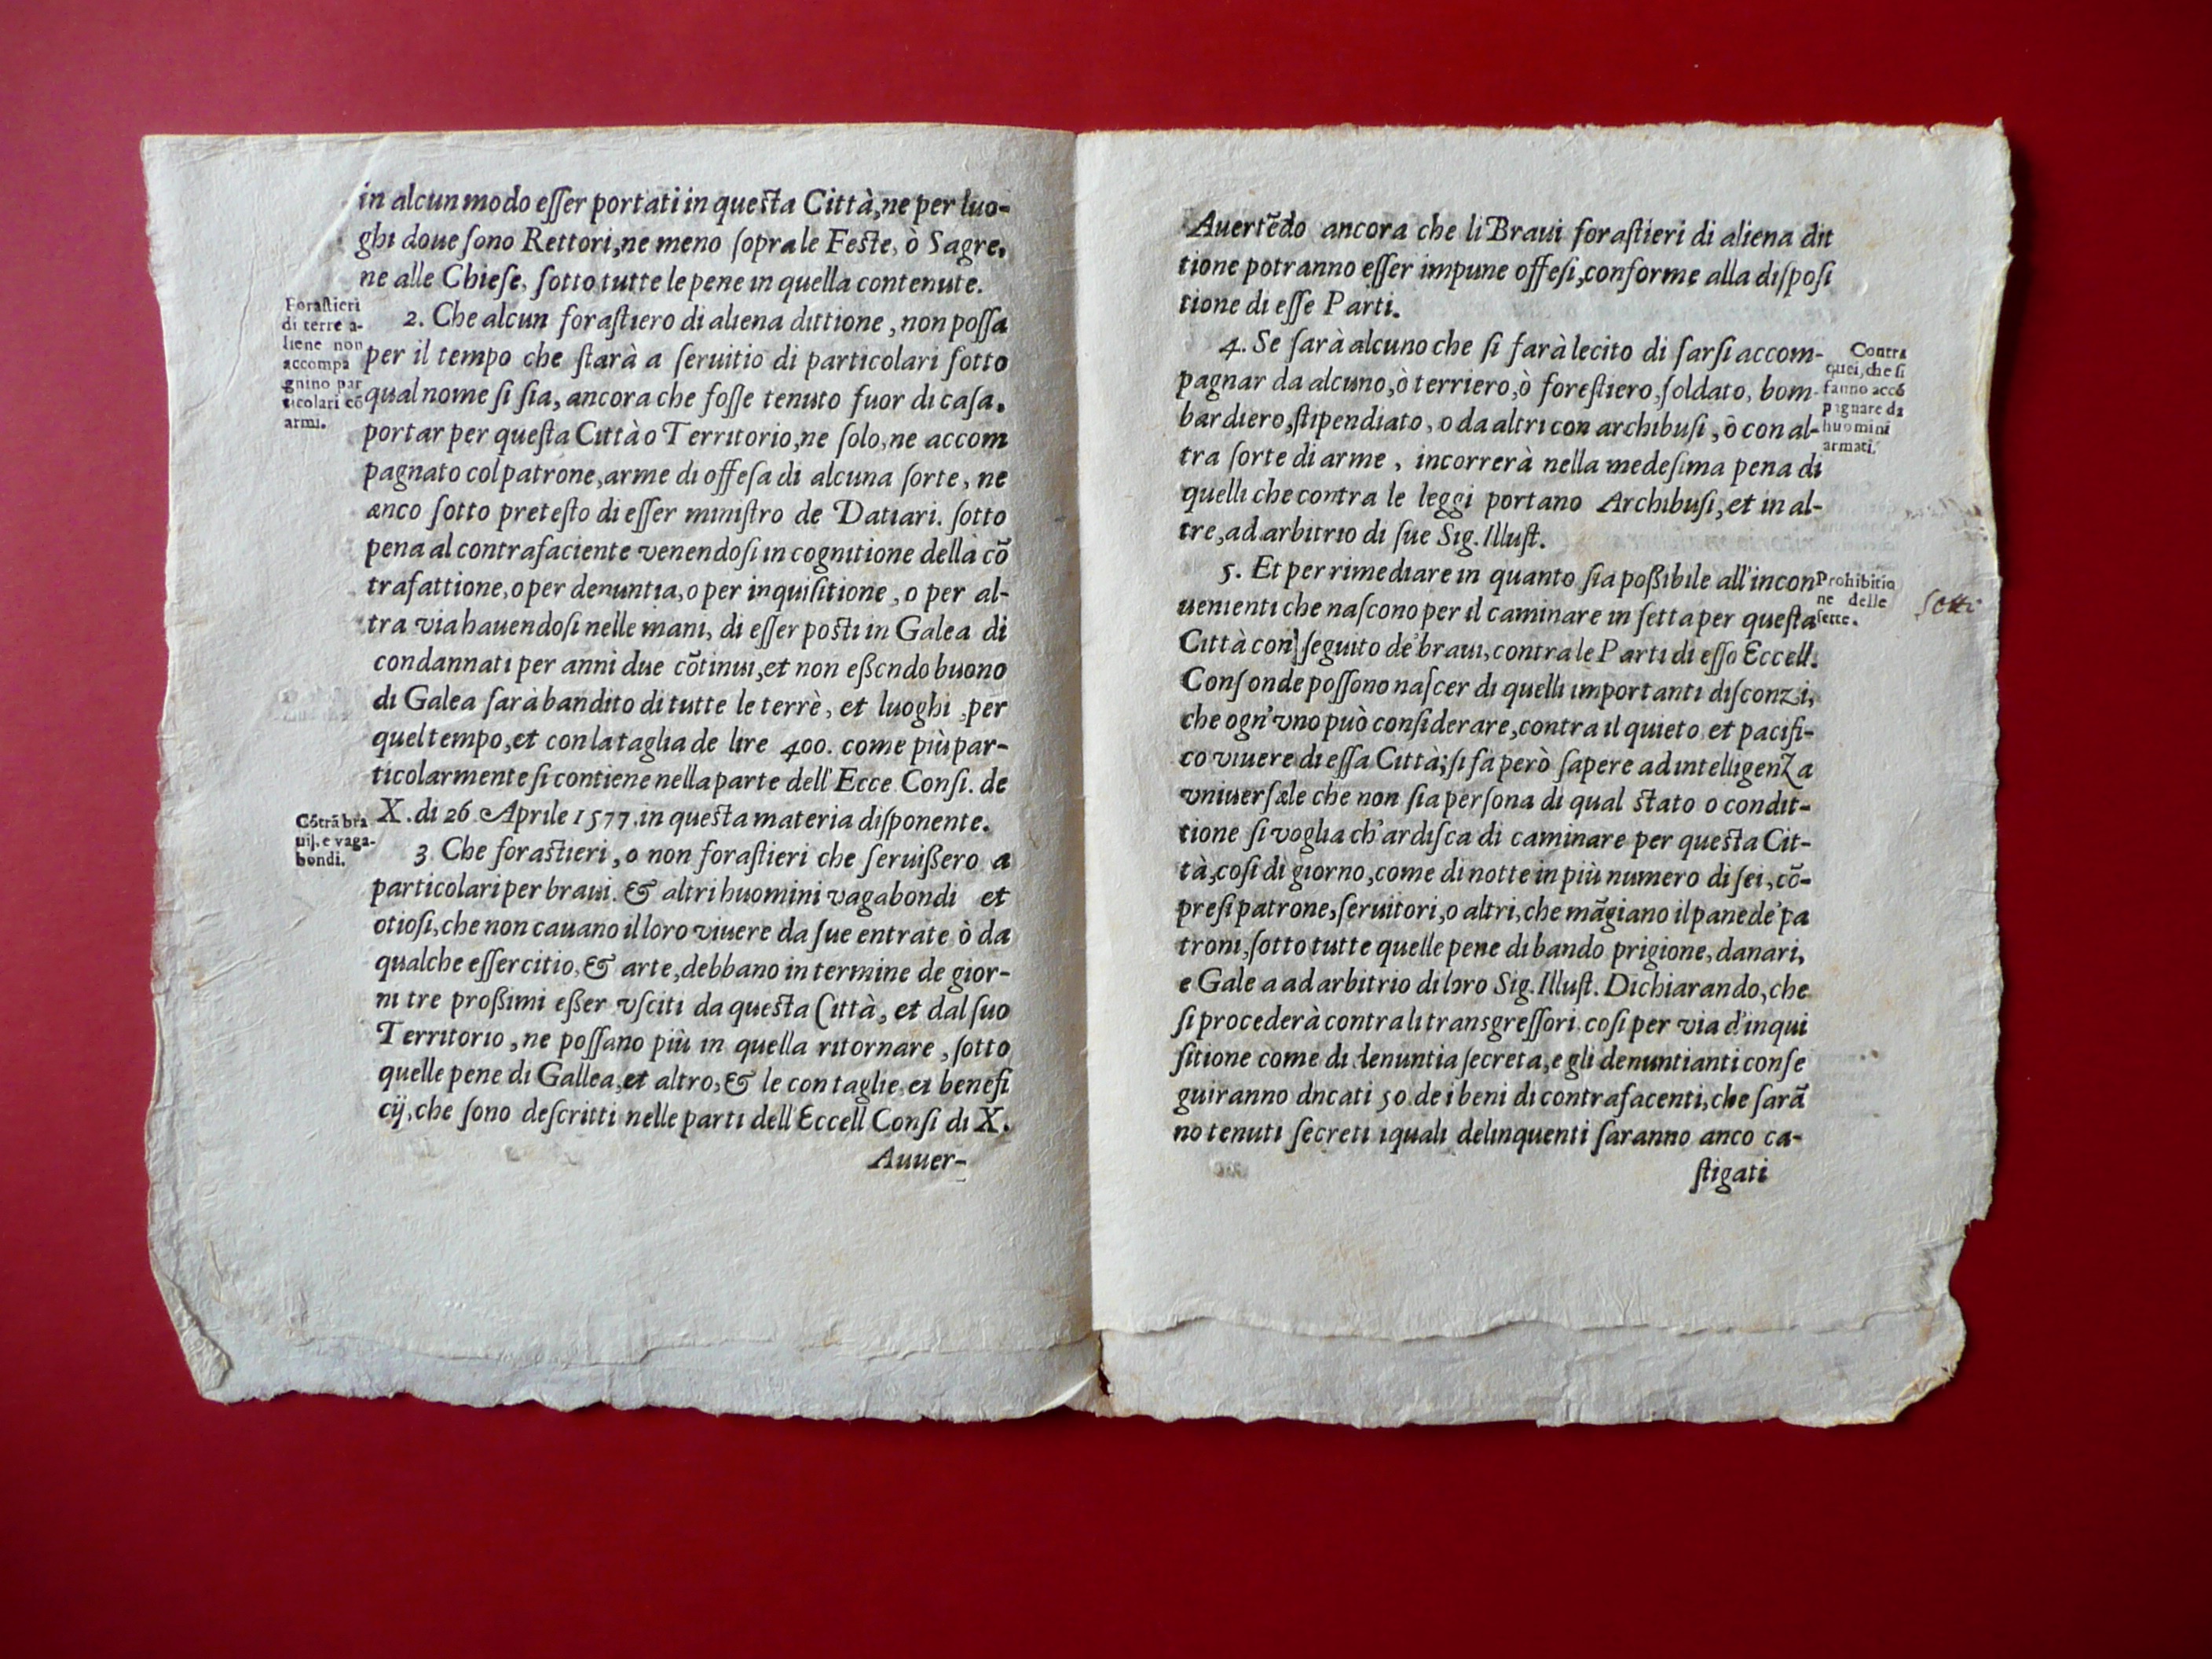 in alcun modo eſſer portati in queſta Città, ne per luo-
ghi doue ſono Rettori, ne meno ſopra le Feſte, ò Sagre,
ne alle Chieſe, ſotto tutte le pene in quella contenute.
Foraſtieri
di terre a-
liene non
accompa
gnino par
ticolari cõ
armi.
2. Che alcun foraſtiero di aliena dittione, non poſſa
per il tempo che ſtarà a ſeruitio di particolari ſotto
qual nome ſi ſia, ancora che foſſe tenuto fuor di caſa.
portar per queſta Città o Territorio, ne ſolo, ne accom
pagnato col patrone, arme di offeſa di alcuna ſorte, ne
anco ſotto preteſto di eſſer miniſtro de Datiari. ſotto
pena al contrafaciente venendoſi in cognitione della cõ
trafattione, o per denuntia, o per inquiſitione, o per al-
tra via hauendoſi nelle mani, di eſſer poſti in Galea di
condannati per anni due cõtinui, et non eßendo buono
di Galea ſarà bandito di tutte le terrè, et luoghi per
quel tempo, et con la taglia de lire 400. come più par-
ticolarmente ſi contiene nella parte dell' Ecce. Conſi. de
X. di 26 Aprile 1577. in queſta materia diſponente.
Cõtrã bra
uij, e vaga-
bondi.
3 Che foraſtieri, o non foraſtieri che ſeruißero a
particolari per braui. & altri huomini vagabondi et
otioſi, che non cauano il loro viuere da ſue entrate ò da
qualche eſſercitio, & arte, debbano in termine de gior-
ni tre proßimi eßer vſciti da queſta Città, et dal ſuo
Territorio, ne poſſano più in quella ritornare, ſotto
quelle pene di Gallea, et altro, & le con taglie et benefi
cij, che ſono deſcritti nelle parti dell Eccell Conſi di X.
Auuer-
Auertẽdo ancora che li Braui foraſtieri di aliena dit
tione potranno eſſer impune offeſi, conforme alla diſpoſi
tione di eſſe Parti.
4. Se ſarà alcuno che ſi farà lecito di farſi accom-
pagnar da alcuno, ò terriero, ò foreſtiero, ſoldato, bom-
bardiero, ſtipendiato, o da altri con archibuſi, ò con al-
tra ſorte di arme, incorrerà nella medeſima pena di
quelli che contra le leggi portano Archibuſi, et in al-
tre, ad arbitrio di ſue Sig. Illuſt.
Contra
quei, che ſi
fanno accõ
pagnare da
huomini
armati.
5. Et per rimediare in quanto ſia poßibile all'incon
uenienti che naſcono per il caminare in ſetta per queſta
Città con ſeguito de' braui, contra le Parti di eſſo Eccell.
Conſ onde poſſono naſcer di quelli importanti diſconzi,
che ogn'vno può conſiderare, contra il quieto et pacifi-
co viuere di eſſa Città; ſi fà però ſapere ad intelligenza
vniuerſale che non ſia perſona di qual ſtato o condit-
tione ſi voglia ch'ardiſca di caminare per queſta Cit-
tà, coſi di giorno, come di notte in più numero di ſei, cõ-
preſi patrone, ſeruitori, o altri, che mãgiano il pane de' pa
troni, ſotto tutte quelle pene di bando prigione, danari,
e Gale a ad arbitrio di loro Sig. Illuſt. Dichiarando, che
ſi procederà contra li transgreſſori, coſi per via d'inqui
ſitione come di denuntia ſecreta, e gli denuntianti conſe
guiranno dncati 50. de i beni di contrafacenti, che ſarã
no tenuti ſecreti iquali delinquenti ſaranno anco ca-
ſtigati
Prohibitio
ne delle
ſette.
ſetti